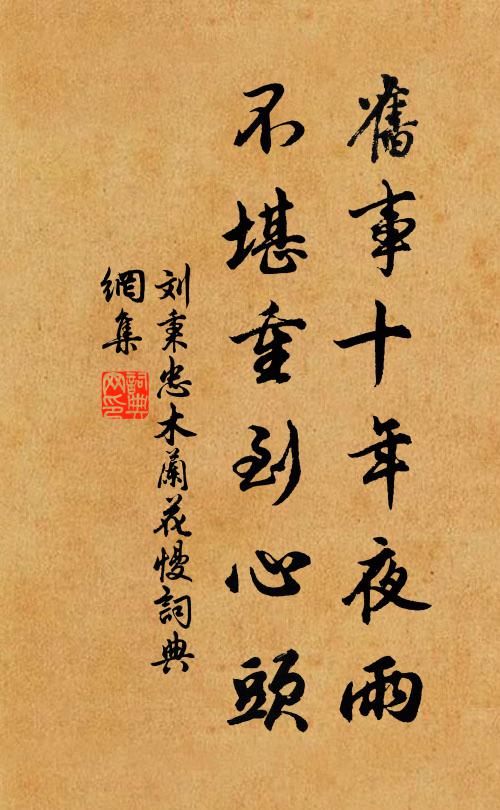 舊事十年夜雨
不堪重到心頭
刘秉忠木蘭花慢詞典
網集
詞典
网印